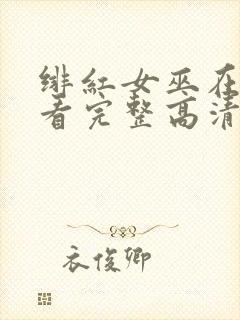 绯红女巫在
看完整高清
衣俊卿